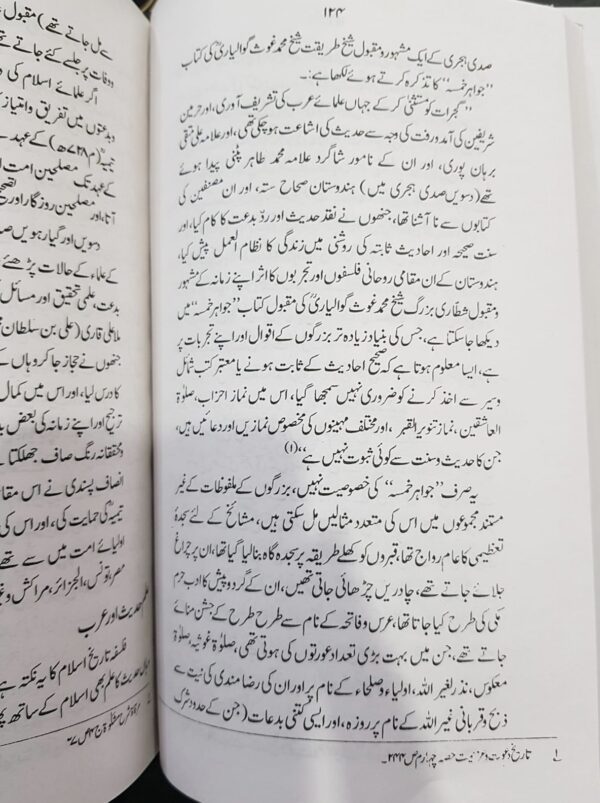 ۱۲۴
صدی ہجری کے ایک مشہور و مقبول شیخ طریقت شیخ محمد غوث گوالیاریؒ کی کتاب
”جواہر خمسہ“ کا تذکرہ کرتے ہوئے لکھا ہے:۔
”گجرات کو مستثنیٰ کر کے جہاں علمائے عرب کی تشریف آوری، اور حرمین
شریفین کی آمد و رفت کی وجہ سے حدیث کی اشاعت ہو چکی تھی، اور علامہ علی متقی
برہان پوری، اور ان کے نامور شاگرد علامہ محمد طاہر پٹنی پیدا ہوئے
تھے (دسویں صدی ہجری میں) ہندوستان صحاح ستہ، اور ان مصنفین کی
کتابوں سے نا آشنا تھا، جنھوں نے نقد حدیث اور ردِّ بدعت کا کام کیا، اور
سنت صحیحہ اور احادیث ثابتہ کی روشنی میں زندگی کا نظام العمل پیش کیا،
ہندوستان کے ان مقامی روحانی فلسفوں اور تجربوں کا اثر اپنے زمانہ کے مشہور
و مقبول شطاری بزرگ شیخ محمد غوث گوالیاریؒ کی مقبول کتاب ”جواہر خمسہ“ میں
دیکھا جا سکتا ہے، جس کی بنیاد زیادہ تر بزرگوں کے اقوال اور اپنے تجربات پر
ہے، ایسا معلوم ہوتا ہے کہ صحیح احادیث کے ثابت ہونے یا معتبر کتب شمائل
و سیر سے اخذ کرنے کو ضروری نہیں سمجھا گیا، اس میں نماز احزاب، صلوٰۃ
العاشقین، نماز تنویر القبر، اور مختلف مہینوں کی مخصوص نمازیں اور دعائیں ہیں،
جن کا حدیث و سنت سے کوئی ثبوت نہیں ہے“ (۱)
یہ صرف ”جواہر خمسہ“ کی خصوصیت نہیں، بزرگوں کے ملفوظات کے غیر
مستند مجموعوں میں اس کی متعدد مثالیں مل سکتی ہیں، مشائخ کے لئے سجدۂ
تعظیمی کا عام رواج تھا، قبروں کو کھلے طریقہ پر سجدہ گاہ بنا لیا گیا تھا، ان پر چراغ
جلائے جاتے تھے، چادریں چڑھائی جاتی تھیں، ان کے گرد و پیش کا ادب حرم
مکی کی طرح کیا جاتا تھا، عرس و فاتحہ کے نام سے طرح طرح کے جشن منائے
جاتے تھے، جن میں بہت بڑی تعداد عورتوں کی ہوتی تھی، صلوٰۃ غوثیہ، صلوٰۃ
معکوس، نذر لغیر اللہ، اولیاء و صلحاء کے نام پر اور ان کی رضا مندی کی نیت سے
ذبح و قربانی غیر اللہ کے نام پر روزہ، اور ایسی کتنی بدعات (جن کے حدود شرک
۱ تاریخ دعوت و عزیمت حصہ چہارم ص ۲۴۴۔
سے مل جاتے تھے) مقبول
و وفات پر جلسے کئے جاتے تھے
اگر علمائے اسلام کی
و بدعتوں میں تفریق و امتیاز
تیمیہؒ (م ۷۲۸ھ) کے عہد سے
کے عہد تک مصلحین امت
مصلحین روزگار اور
آتا، اور
دسویں اور گیارہویں صدی
کے علماء کے حالات پڑھئے
بدعت، علمی تحقیق اور مسائل
ملا علی قاری (علی بن سلطان محمد
جنھوں نے حجاز جا کر وہاں کے
کا درس لیا، اور اس میں کمال
ترجیح اور اپنے زمانہ کی بعض بد
و محققانہ رنگ صاف جھلکتا
انصاف پسندی نے اس مقا
تیمیہؒ کی حمایت کی، اور اس کی
اولیائے امت میں سے تھے
مصر، تونس، الجزائر، مراکش و غیر
علم حدیث اور عرب
فلسفۂ تاریخ اسلام کا یہ نکتہ ہے
حدیث کا علم بھی اسلام کے ساتھ